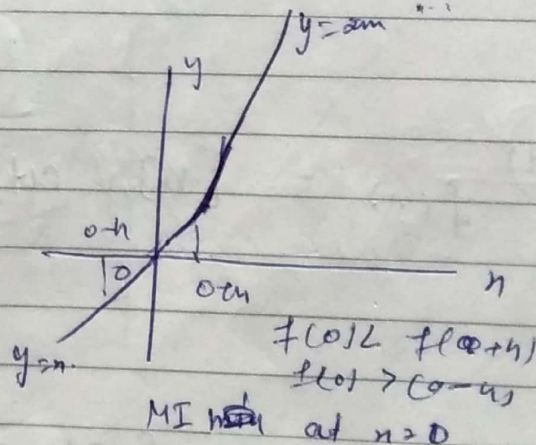 y = 2x
y
0-h
0
0+h
x
y=x
f(0) < f(0+h)
f(0) > (0-h)
MI at x=0